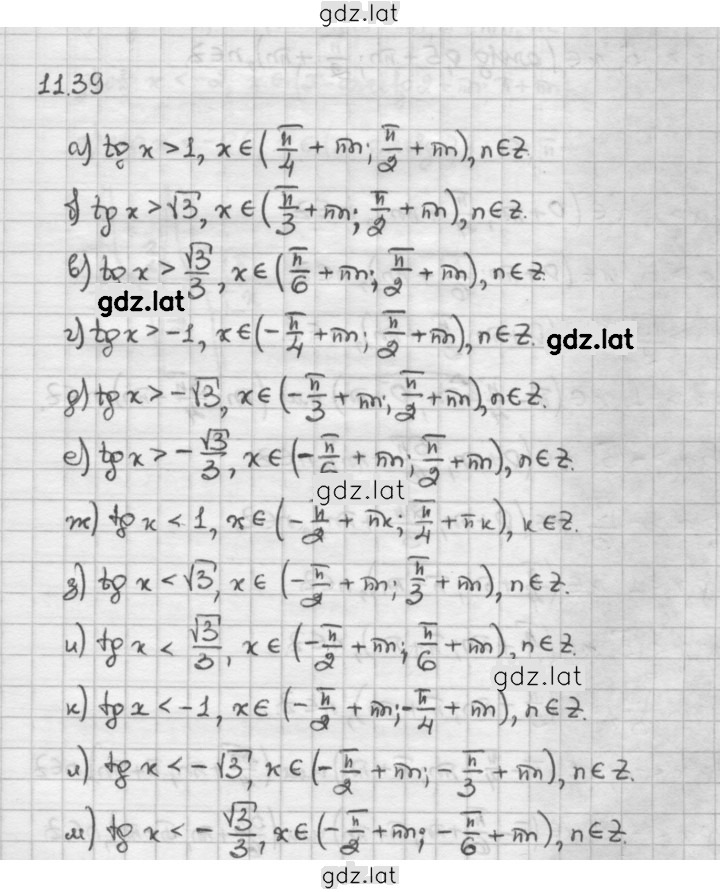 gdz.lat
11.39
а) tg x > 1, x ∈ (π/4 + πn; π/2 + πn), n ∈ Z.
б) tg x > √3, x ∈ (π/3 + πn; π/2 + πn), n ∈ Z.
в) tg x > √3/3, x ∈ (π/6 + πn; π/2 + πn), n ∈ Z.
gdz.lat
г) tg x > -1, x ∈ (-π/4 + πn; π/2 + πn), n ∈ Z.
gdz.lat
д) tg x > -√3, x ∈ (-π/3 + πn; π/2 + πn), n ∈ Z.
е) tg x > -√3/3, x ∈ (-π/6 + πn; π/2 + πn), n ∈ Z.
gdz.lat
ж) tg x < 1, x ∈ (-π/2 + πk; π/4 + πk), k ∈ Z.
з) tg x < √3, x ∈ (-π/2 + πn; π/3 + πn), n ∈ Z.
и) tg x < √3/3, x ∈ (-π/2 + πn; π/6 + πn), n ∈ Z.
gdz.lat
к) tg x < -1, x ∈ (-π/2 + πn; -π/4 + πn), n ∈ Z.
л) tg x < -√3, x ∈ (-π/2 + πn; -π/3 + πn), n ∈ Z.
м) tg x < -√3/3, x ∈ (-π/2 + πn; -π/6 + πn), n ∈ Z.
gdz.lat